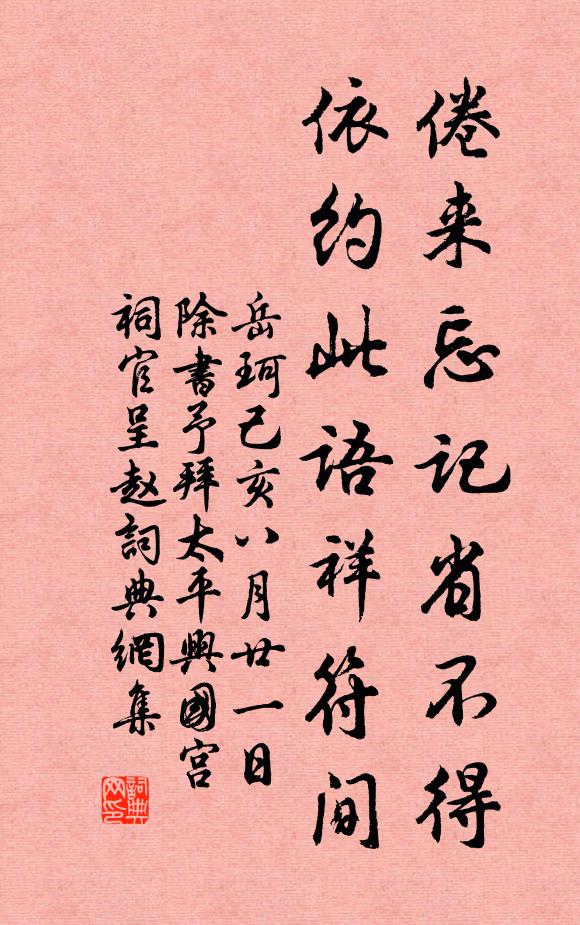 倦来忘记省不得
依约此语祥符间
岳珂己亥八月廿一日
除書予拜太平興國宫
祠官呈赵詞典網集
詞典
网印